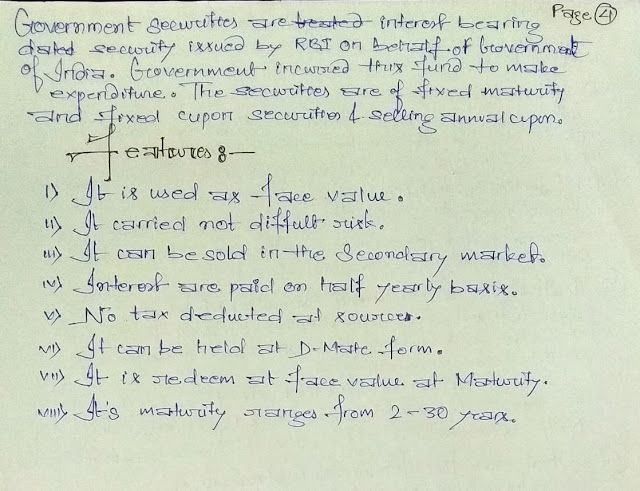 Page 4
Government securities are treated interest bearing
dated security issued by RBI on Behalf of Government
of India. Government incurred this fund to make
expenditure. The securities are of fixed maturity
and fixed cupon securities & selling annual cupon.
Features :-
i) It is used as face value.
ii) It carried not diffult risk.
iii) It can be sold in the Secondary market.
iv) Interest are paid on half yearly basis.
v) No tax deducted at sources.
vi) It can be held at D-Mate form.
vii) It is redeem at face value at Maturity.
viii) It's maturity ranges from 2-30 years.